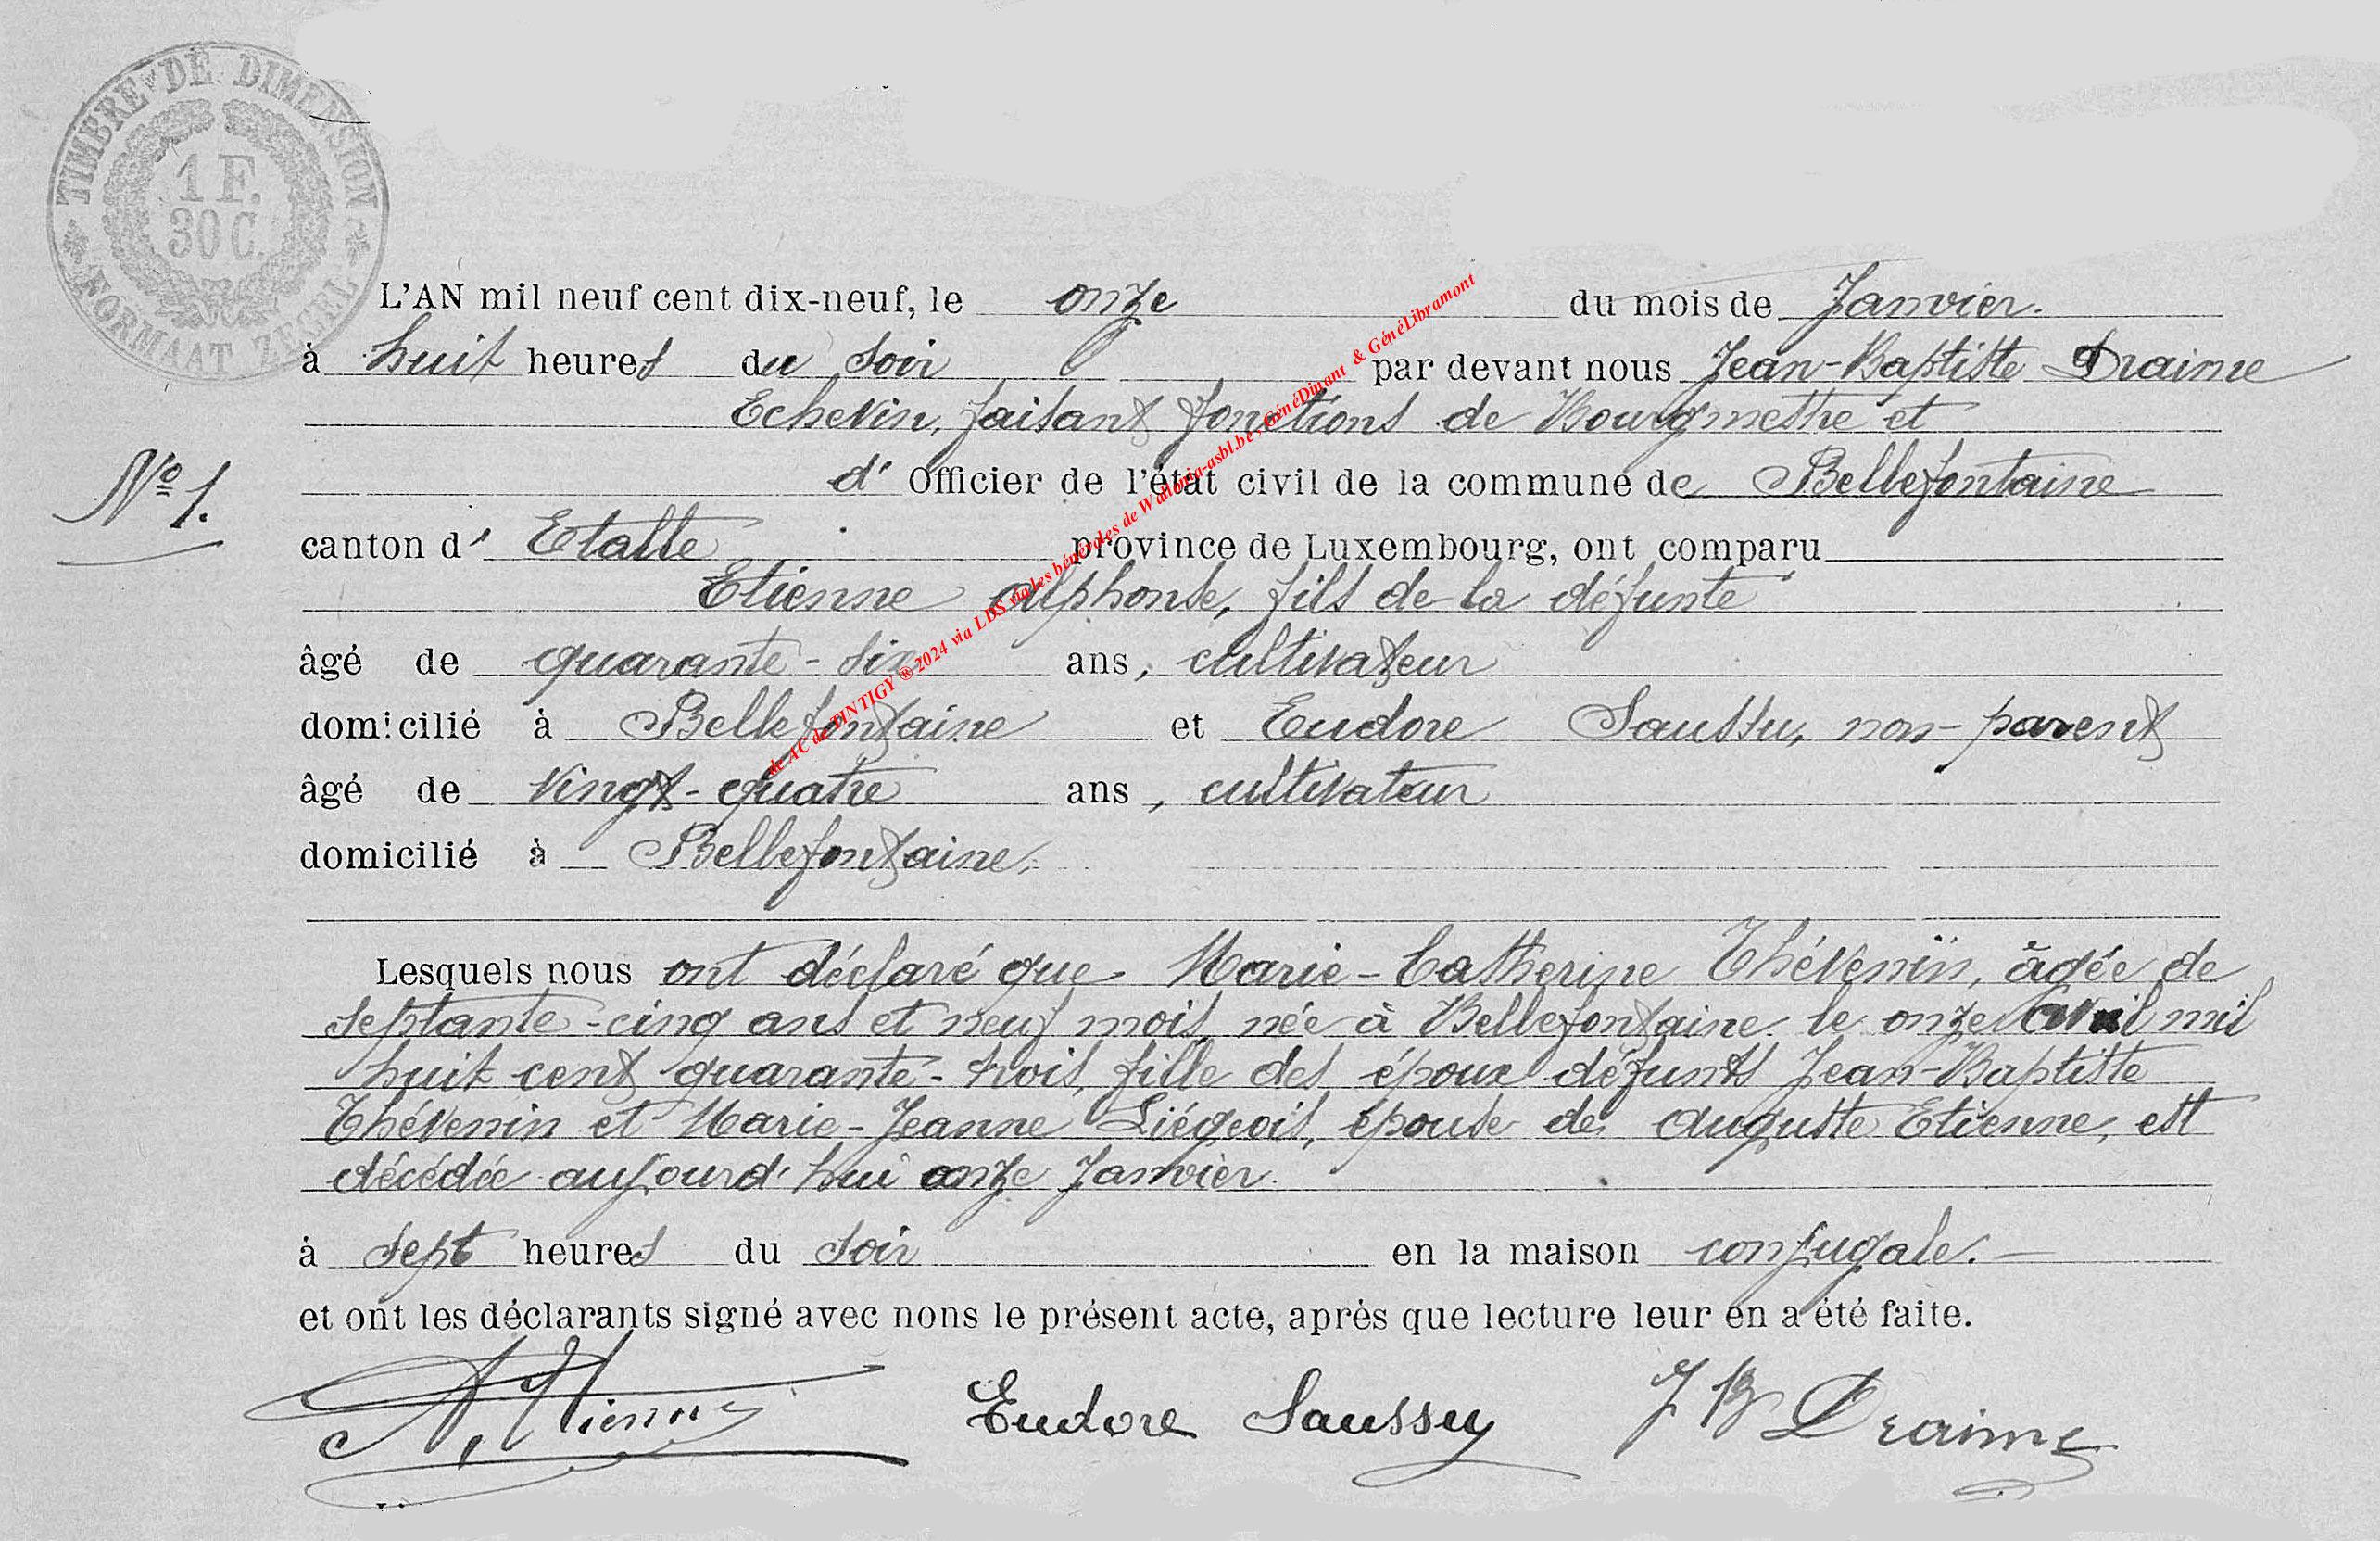 TIMBRE DE DIMENSION
1 F.
30 C.
NORMAAT ZEGEL
L'AN mil neuf cent dix-neuf, le onze du mois de Janvier.
à huit heures du soir par devant nous Jean-Baptiste Draime
Echevin, faisant fonctions de Bourgmestre et
d' Officier de l'état civil de la commune de Bellefontaine
N° 1.
canton d' Etalle province de Luxembourg, ont comparu
Etienne Alphonse, fils de la défunte
âgé de quarante-six ans, cultivateur
domicilié à Bellefontaine et Eudore Saussu, non-parent
âgé de vingt-quatre ans, cultivateur
domicilié à Bellefontaine.
Lesquels nous ont déclaré que Marie-Catherine Thévenin, âgée de
septante-cinq ans et neuf mois, née à Bellefontaine le onze Avril mil
huit cent quarante-trois, fille des époux défunts Jean-Baptiste
Thévenin et Marie-Jeanne Liégeois, épouse de Auguste Etienne, est
décédée aujourd'hui onze Janvier.
à sept heures du soir en la maison conjugale.
et ont les déclarants signé avec nons le présent acte, après que lecture leur en a été faite.
A. Etienne Eudore Saussu J B Draime
de AC de TINTIGY ® 2024 via LDS via les bénévoles de Wallonia-asbl.be, GénéDinant & GénéLibramont